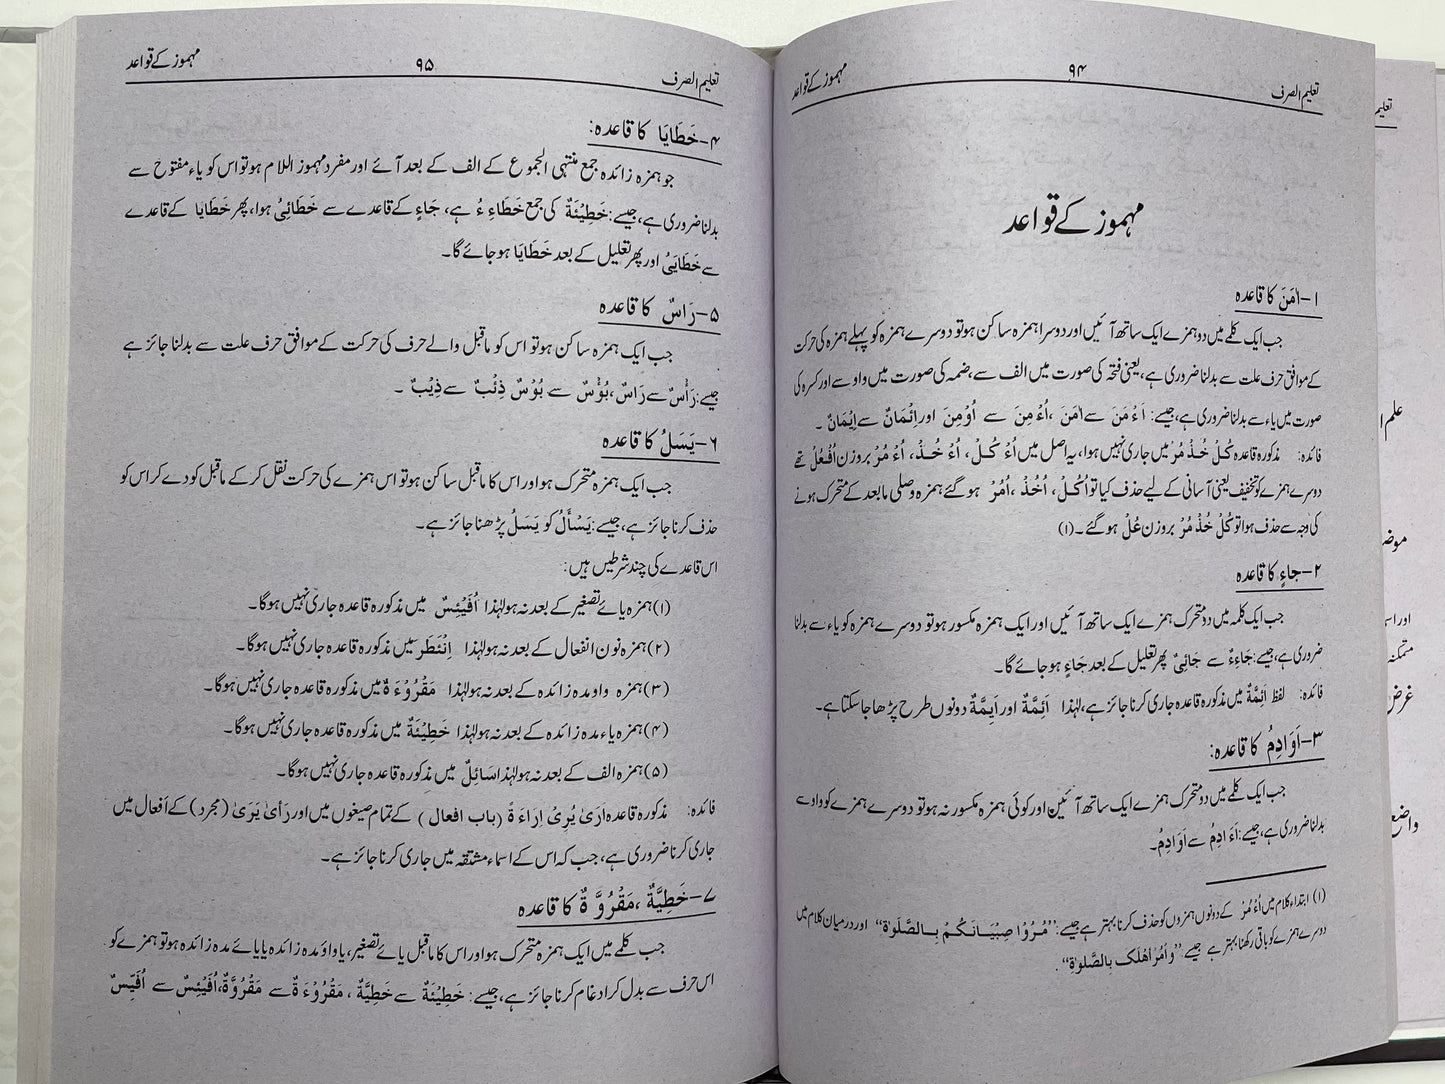 تعلیم الصرف ۹۴ مہموز کے قواعد
مہموز کے قواعد
۱-اٰمَنَ کا قاعدہ
جب ایک کلمے میں دو ہمزے ایک ساتھ آئیں اور دوسرا ہمزہ ساکن ہو تو دوسرے ہمزہ کو پہلے ہمزہ کی حرکت
کے موافق حرف علت سے بدلنا ضروری ہے، یعنی فتحہ کی صورت میں الف سے، ضمہ کی صورت میں واو سے اور کسرہ کی
صورت میں یاء سے بدلنا ضروری ہے، جیسے: اَءْمَنَ سے اٰمَنَ ،اُءْمِنَ سے اُوْمِنَ اور اِئْمَانٌ سے اِیْمَانٌ ۔
فائدہ: مذکورہ قاعدہ کُلْ خُذْ مُرْ میں جاری نہیں ہوا، یہ اصل میں اُءْ کُلْ، اُءْ خُذْ، اُءْ مُرْ بروزن اُفْعُلْ تھے
دوسرے ہمزے کو تخفیف یعنی آسانی کے لیے حذف کیا تو اُکُلْ، اُخُذْ ،اُمُرْ ہو گئے ہمزہ وصلی مابعد کے متحرک ہونے
کی وجہ سے حذف ہوا تو کُلْ خُذْ مُرْ بروزن عُلْ ہو گئے۔(۱)
۲-جاءٍ کا قاعدہ
جب ایک کلمہ میں دو متحرک ہمزے ایک ساتھ آئیں اور ایک ہمزہ مکسور ہو تو دوسرے ہمزہ کو یاء سے بدلنا
ضروری ہے، جیسے: جَاءِءٌ سے جَائِیٌ پھر تعلیل کے بعد جَاءٍ ہو جائے گا۔
فائدہ: لفظ اَئِمَّةٌ میں مذکورہ قاعدہ جاری کرنا جائز ہے، لہٰذا اَئِمَّةٌ اور اَیِمَّةٌ دونوں طرح پڑھا جا سکتا ہے۔
۳-اَوَادِمُ کا قاعدہ:
جب ایک کلمے میں دو متحرک ہمزے ایک ساتھ آئیں اور کوئی ہمزہ مکسور نہ ہو تو دوسرے ہمزے کو واو سے
بدلنا ضروری ہے، جیسے: اَءَادِمُ سے اَوَادِمُ۔
(۱) ابتداء کلام میں اُءْ مُرْ کے دونوں ہمزوں کو حذف کرنا بہتر ہے جیسے: ”مُرُوْا صِبْیَانَکُمْ بِالصَّلٰوۃِ“ اور درمیان کلام میں
دوسرے ہمزے کو باقی رکھنا بہتر ہے جیسے ”وَأْمُرْ اَهْلَکَ بِالصَّلٰوۃِ“ .
تعلیم الصرف ۹۵ مہموز کے قواعد
۴-خَطَایَا کا قاعدہ:
جو ہمزہ زائدہ جمع منتہی الجموع کے الف کے بعد آئے اور مفرد مہموز اللام ہو تو اس کو یاء مفتوح سے
بدلنا ضروری ہے، جیسے: خَطِیْئَةٌ کی جمع خَطَاءِءُ ہے، جَاءٍ کے قاعدے سے خَطَائِیُ ہوا، پھر خَطَایَا کے قاعدے
سے خَطَایَیُ اور پھر تعلیل کے بعد خَطَایَا ہو جائے گا۔
۵-رَاسٌ کا قاعدہ
جب ایک ہمزہ ساکن ہو تو اس کو ماقبل والے حرف کی حرکت کے موافق حرف علت سے بدلنا جائز ہے
جیسے: رَأْسٌ سے رَاسٌ، بُؤْسٌ سے بُوْسٌ ذِئْبٌ سے ذِیْبٌ ۔
۶-یَسَلُ کا قاعدہ
جب ایک ہمزہ متحرک ہو اور اس کا ماقبل ساکن ہو تو اس ہمزے کی حرکت نقل کر کے ماقبل کو دے کر اس کو
حذف کرنا جائز ہے، جیسے: یَسْأَلُ کو یَسَلُ پڑھنا جائز ہے۔
اس قاعدے کی چند شرطیں ہیں:
(۱) ہمزہ یائے تصغیر کے بعد نہ ہو لہٰذا اُفَیْئِسٌ میں مذکورہ قاعدہ جاری نہیں ہوگا۔
(۲) ہمزہ نون انفعال کے بعد نہ ہو لہٰذا اِنْئَطَرَ میں مذکورہ قاعدہ جاری نہیں ہوگا۔
(۳) ہمزہ واو مدہ زائدہ کے بعد نہ ہو لہٰذا مَقْرُوْءَةٌ میں مذکورہ قاعدہ جاری نہیں ہوگا۔
(۴) ہمزہ یاء مدہ زائدہ کے بعد نہ ہو لہٰذا خَطِیْئَةٌ میں مذکورہ قاعدہ جاری نہیں ہوگا۔
(۵) ہمزہ الف کے بعد نہ ہو لہٰذا سَائِلٌ میں مذکورہ قاعدہ جاری نہیں ہوگا۔
فائدہ: مذکورہ قاعدہ اَرَیٰ یُرِیْ اِرَاءَةً (باب افعال) کے تمام صیغوں میں اور رَأیٰ یَرَیٰ (مجرد) کے اَفعال میں
جاری کرنا ضروری ہے، جب کہ اس کے اسماء مشتقہ میں جاری کرنا جائز ہے۔
۷-خَطِیَّةٌ ،مَقْرُوَّةٌ کا قاعدہ
جب کلمے میں ہمزہ متحرک ہو اور اس کا ماقبل یائے تصغیر، یا واؤ مدہ زائدہ یا یائے مدہ زائدہ ہو تو ہمزے کو
اس حرف سے بدل کر ادغام کرنا جائز ہے، جیسے: خَطِیْئَةٌ سے خَطِیَّةٌ ، مَقْرُوْءَةٌ سے مَقْرُوَّةٌ، اُفَیْئِسٌ سے اُفَیِّسٌ
تعلیم
علم ا
موضـ
اور اسـ
متمکنہ
غرض
واضع